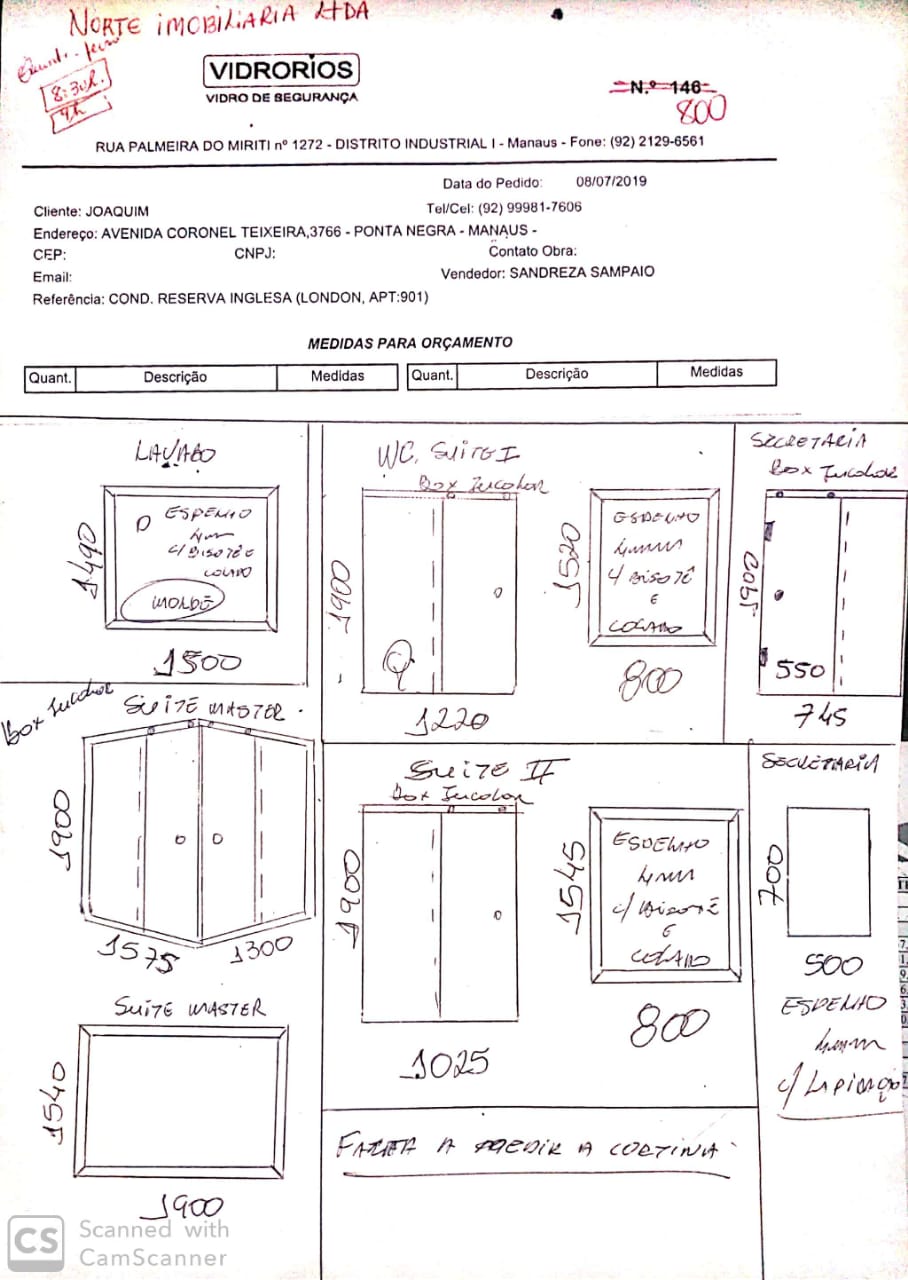 NORTE IMOBILIARIA LTDA
8:30h.
9h
VIDRORIOS
VIDRO DE SEGURANÇA
N.º 146
800
RUA PALMEIRA DO MIRITI nº 1272 - DISTRITO INDUSTRIAL I - Manaus - Fone: (92) 2129-6561
Data do Pedido: 08/07/2019
Cliente: JOAQUIM
Tel/Cel: (92) 99981-7606
Endereço: AVENIDA CORONEL TEIXEIRA,3766 - PONTA NEGRA - MANAUS -
CEP:
CNPJ:
Contato Obra:
Email:
Vendedor: SANDREZA SAMPAIO
Referência: COND. RESERVA INGLESA (LONDON, APT:901)
MEDIDAS PARA ORÇAMENTO
Quant. Descrição Medidas Quant. Descrição Medidas
LAVABO
ESPELHO
4mm
c/ BISOTÊ E
COLADO
MOLDE
1490
1500
WC. SUITE I
Box Incolor
1900
1220
ESPELHO
4mm
c/ BISOTÊ
E
COLADO
1520
800
SECRETARIA
Box Incolor
1900
550
745
Box Incolor
SUITE MASTER
1900
1575
1300
SUITE II
Box Incolor
1900
1025
ESPELHO
4mm
c/ BISOTÊ
E
COLADO
1545
800
SECRETARIA
700
500
ESPELHO
4mm
c/ LAPIDAÇÃO
SUITE MASTER
1540
1900
FALTA A MEDIR A CORTINA
CS
Scanned with
CamScanner